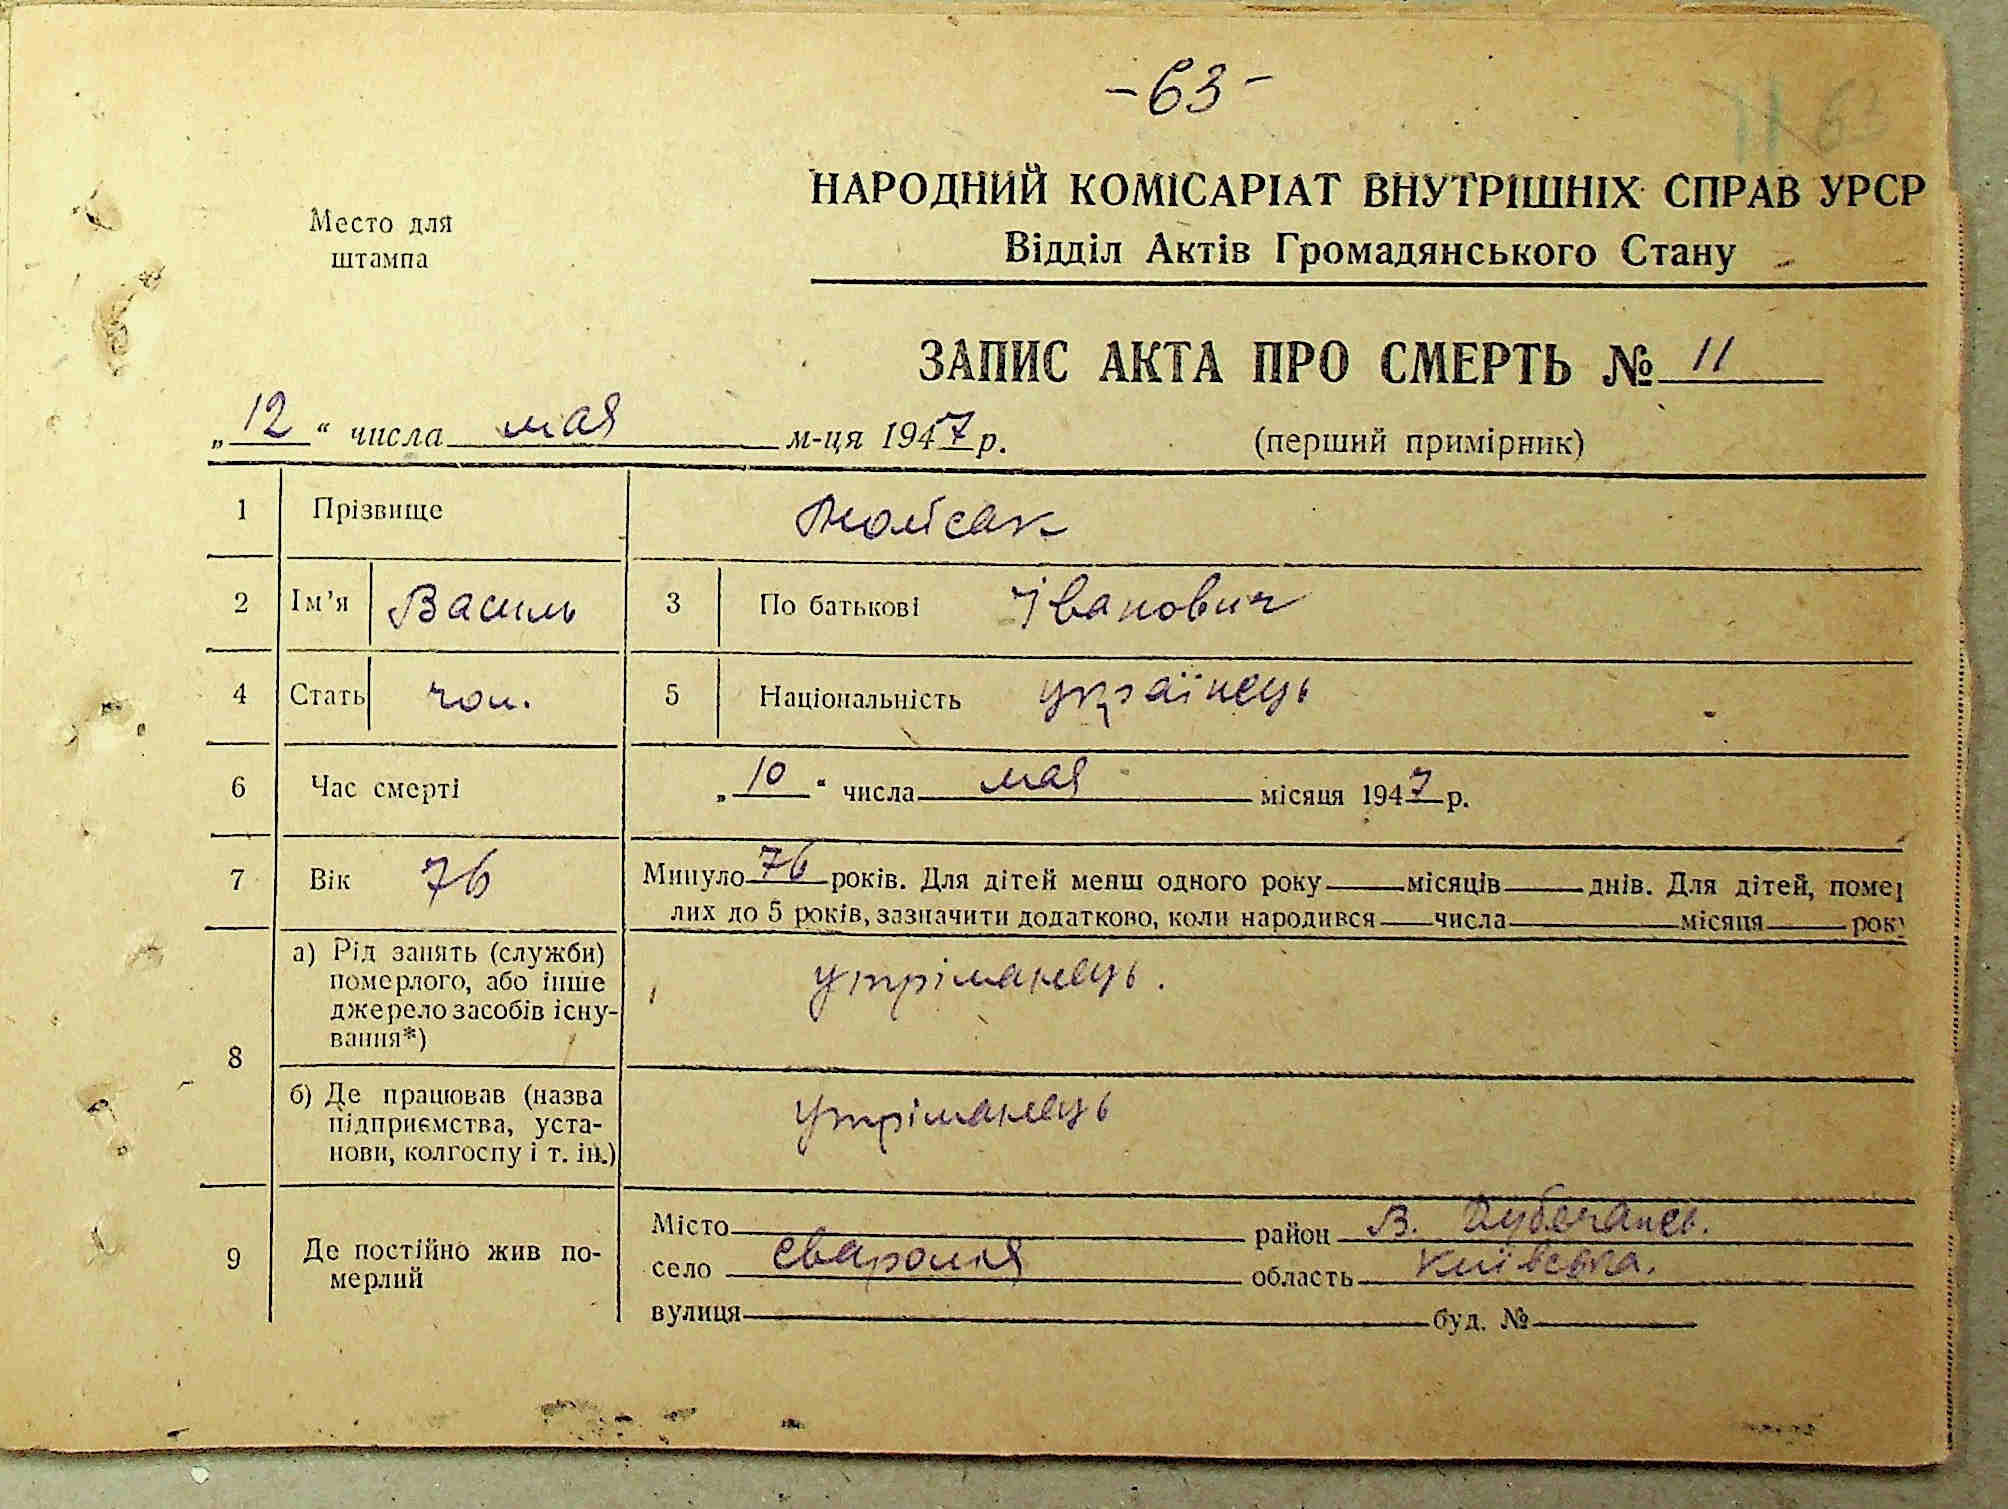 -63-
11 63
НАРОДНИЙ КОМІСАРІАТ ВНУТРІШНІХ СПРАВ УРСР
Место для
штампа
Відділ Актів Громадянського Стану
ЗАПИС АКТА ПРО СМЕРТЬ № 11
„12“ числа мая м-ця 1947 р. (перший примірник)
1 Прізвище
2 Ім'я Василь 3 По батькові Іванович
4 Стать чол. 5 Національність українець
6 Час смерті „10“ числа мая місяця 1947 р.
7 Вік 76 Минуло 76 років. Для дітей менш одного року місяців днів. Для дітей, помер
лих до 5 років, зазначити додатково, коли народився числа місяця рок
8 а) Рід занять (служби)
померлого, або інше
джерело засобів існу-
вання*) утріманець.
б) Де працював (назва
підприємства, уста-
нови, колгоспу і т. ін.) утріманець
9 Де постійно жив по-
мерлий
Місто район В. Дубечанск.
село Сваромя область Київська.
вулиця буд. №